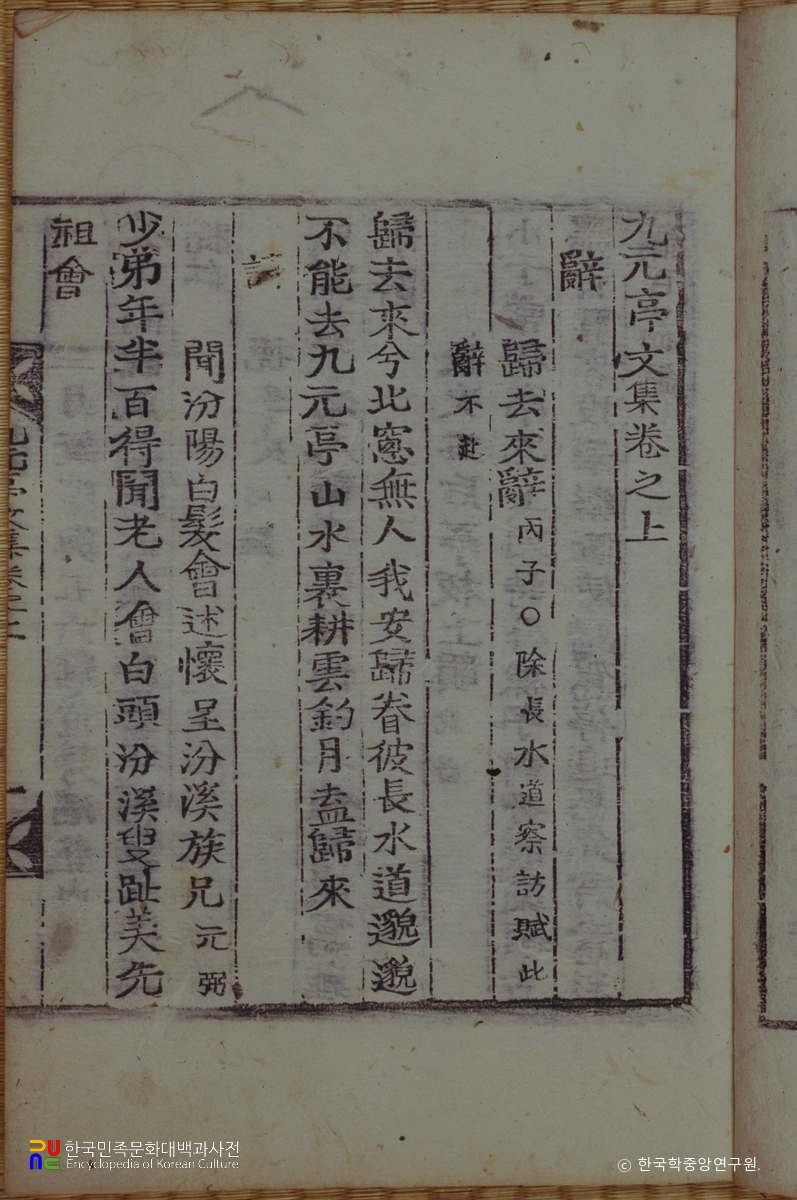 九元亭文集卷之上
辭
歸去來辭 丙子○除長水道察訪賦此
辭不赴
歸去來兮北窓無人我安歸眷彼長水道邈邈
不能去九元亭山水裏耕雲釣月盍歸來
詩
聞汾陽白髮會述懷呈汾溪族兄元弼
少弟年半百得聞老人會白頭汾溪叟趾美先
祖會
한국민족문화대백과사전
Encyclopedia of Korean Culture
© 한국학중앙연구원.